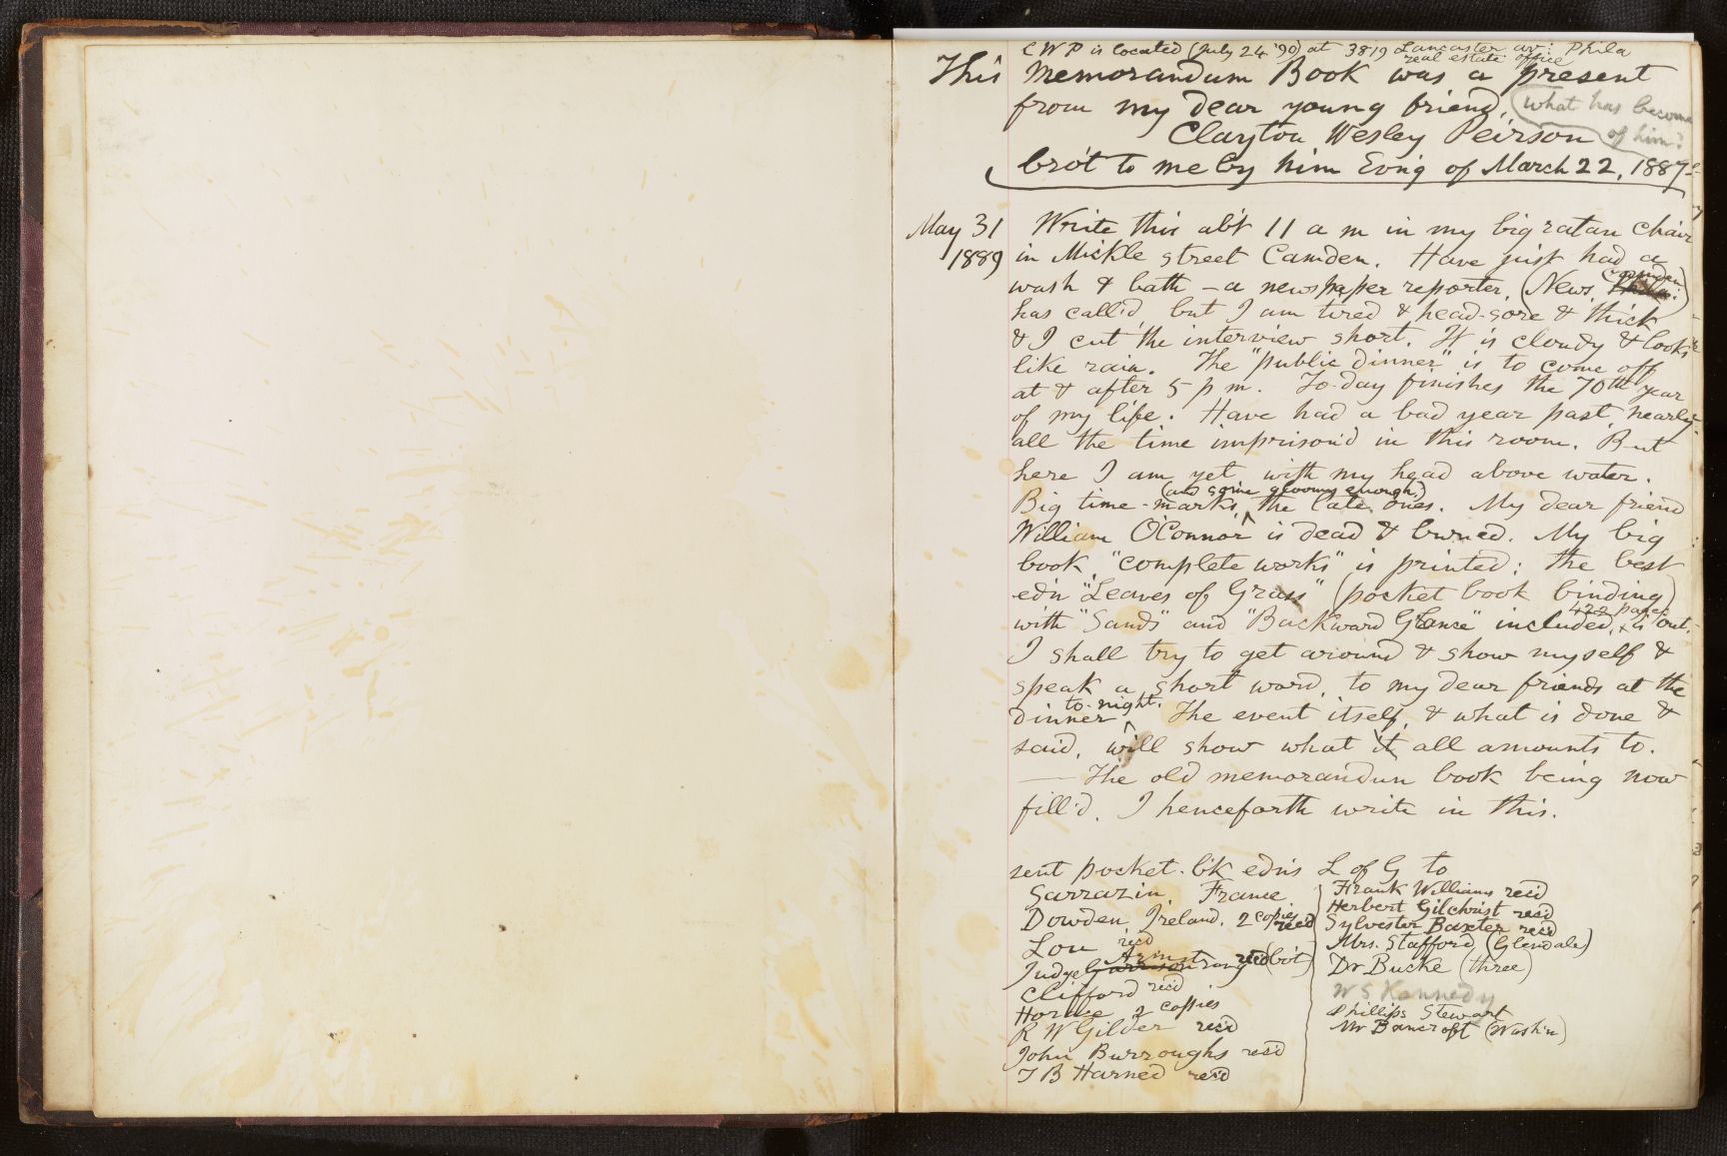 CWP is located (July 24 '90) at 3819 Lancaster av: Phila
real estate office
This Memorandum Book was a present
from my dear young friend, (what has become
Clayton Wesley Peirson of him?
bro't to me by him Evn'g of March 22, 1887
May 31 Write this ab't 11 a m in my big ratan chair
1889 in Mickle street Camden. Have just had a
wash & bath – a newspaper reporter, (News, Camden)
has call'd, but I am tired & head-sore & thick
& I cut the interview short. It is cloudy & looks
like rain. The "public dinner" is to come off
at & after 5 p m. To-day finishes the 70th year
of my life. Have had a bad year past, nearly
all the time imprison'd in this room. But
here I am yet with my head above water.
(and some gloomy enough,)
Big time-marks, ^ the late ones. My dear friend
William O'Connor is dead & buried. My big
book, "complete works" is printed: the best
ed'n "Leaves of Grass" (pocket book binding)
422 pages
with "Sands" and "Backward Glance" included, is out.
I shall try to get around & show myself &
speak a short word, to my dear friends at the
to-night.
dinner ^ The event itself, & what is done &
said, will show what it all amounts to.
— The old memorandum book being now
fill'd, I henceforth write in this.
sent pocket-b'k ed'ns L of G to
Sarrazin, France
Dowden, Ireland, 2 copies rec'd
Lou rec'd
Judge Garrison Armstrong rec'd (bo't)
Clifford rec'd
Horace 2 copies
R W Gilder rec'd
John Burroughs rec'd
T B Harned rec'd
Frank Williams rec'd
Herbert Gilchrist rec'd
Sylvester Baxter rec'd
Mrs. Stafford, (Glendale)
Dr Bucke (three)
W S Kennedy
Phillips Stewart
Mr Bancroft (Wash'n)